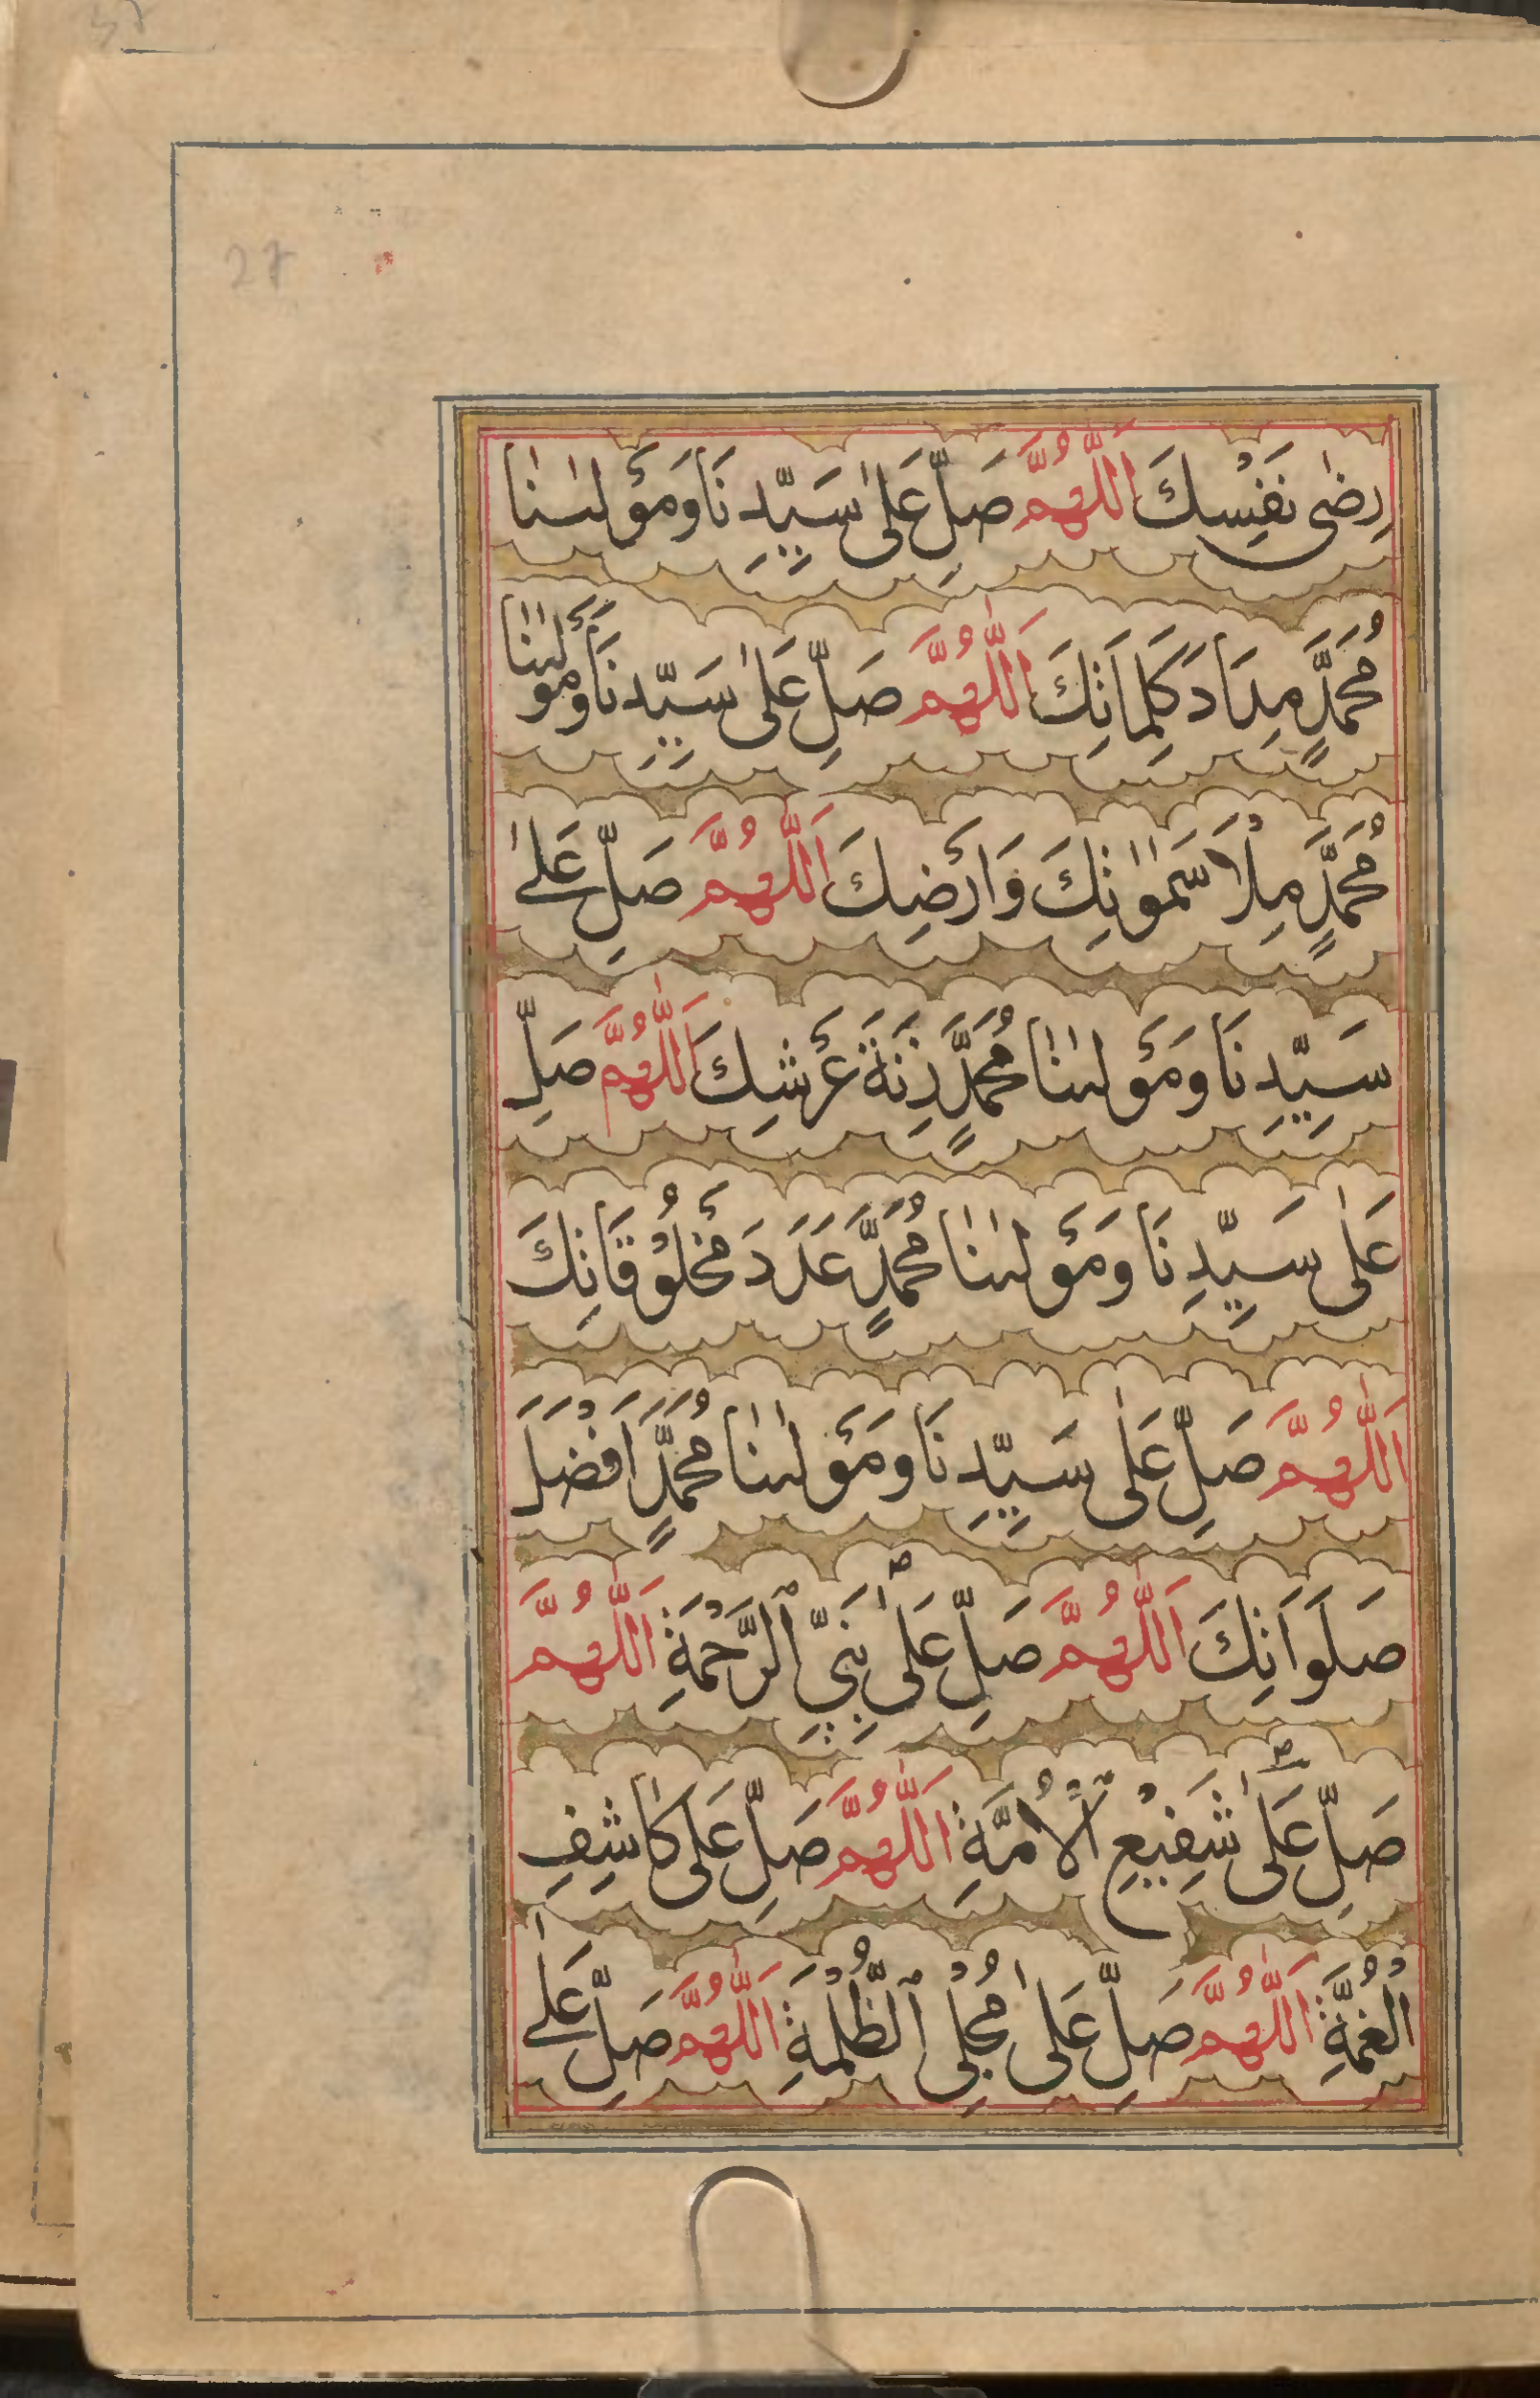 27
رِضٰى نَفْسِكَ اَللّٰهُمَّ صَلِّ عَلٰى سَيِّدِنَا وَمَوْلٰىنٰا
مُحَمَّدٍ مِدَادَ كَلِمَاتِكَ اَللّٰهُمَّ صَلِّ عَلٰى سَيِّدِنَا وَمَوْلٰىنٰا
مُحَمَّدٍ مِلْأَ سَمٰوٰاتِكَ وَاَرْضِكَ اَللّٰهُمَّ صَلِّ عَلٰى
سَيِّدِنَا وَمَوْلٰىنٰا مُحَمَّدٍ زِنَةَ عَرْشِكَ اَللّٰهُمَّ صَلِّ
عَلٰى سَيِّدِنَا وَمَوْلٰىنٰا مُحَمَّدٍ عَدَدَ مَخْلُوْقَاتِكَ
اَللّٰهُمَّ صَلِّ عَلٰى سَيِّدِنَا وَمَوْلٰىنٰا مُحَمَّدٍ اَفْضَلَ
صَلَوَاتِكَ اَللّٰهُمَّ صَلِّ عَلٰى نَبِيِّ ٱلرَّحْمَةِ اَللّٰهُمَّ
صَلِّ عَلٰى شَفِيْعِ ٱلْأُمَّةِ اَللّٰهُمَّ صَلِّ عَلٰى كٰاشِفِ
الْغُمَّةِ اَللّٰهُمَّ صَلِّ عَلٰى مُجْلِي ٱلظُّلْمَةِ اَللّٰهُمَّ صَلِّ عَلٰى